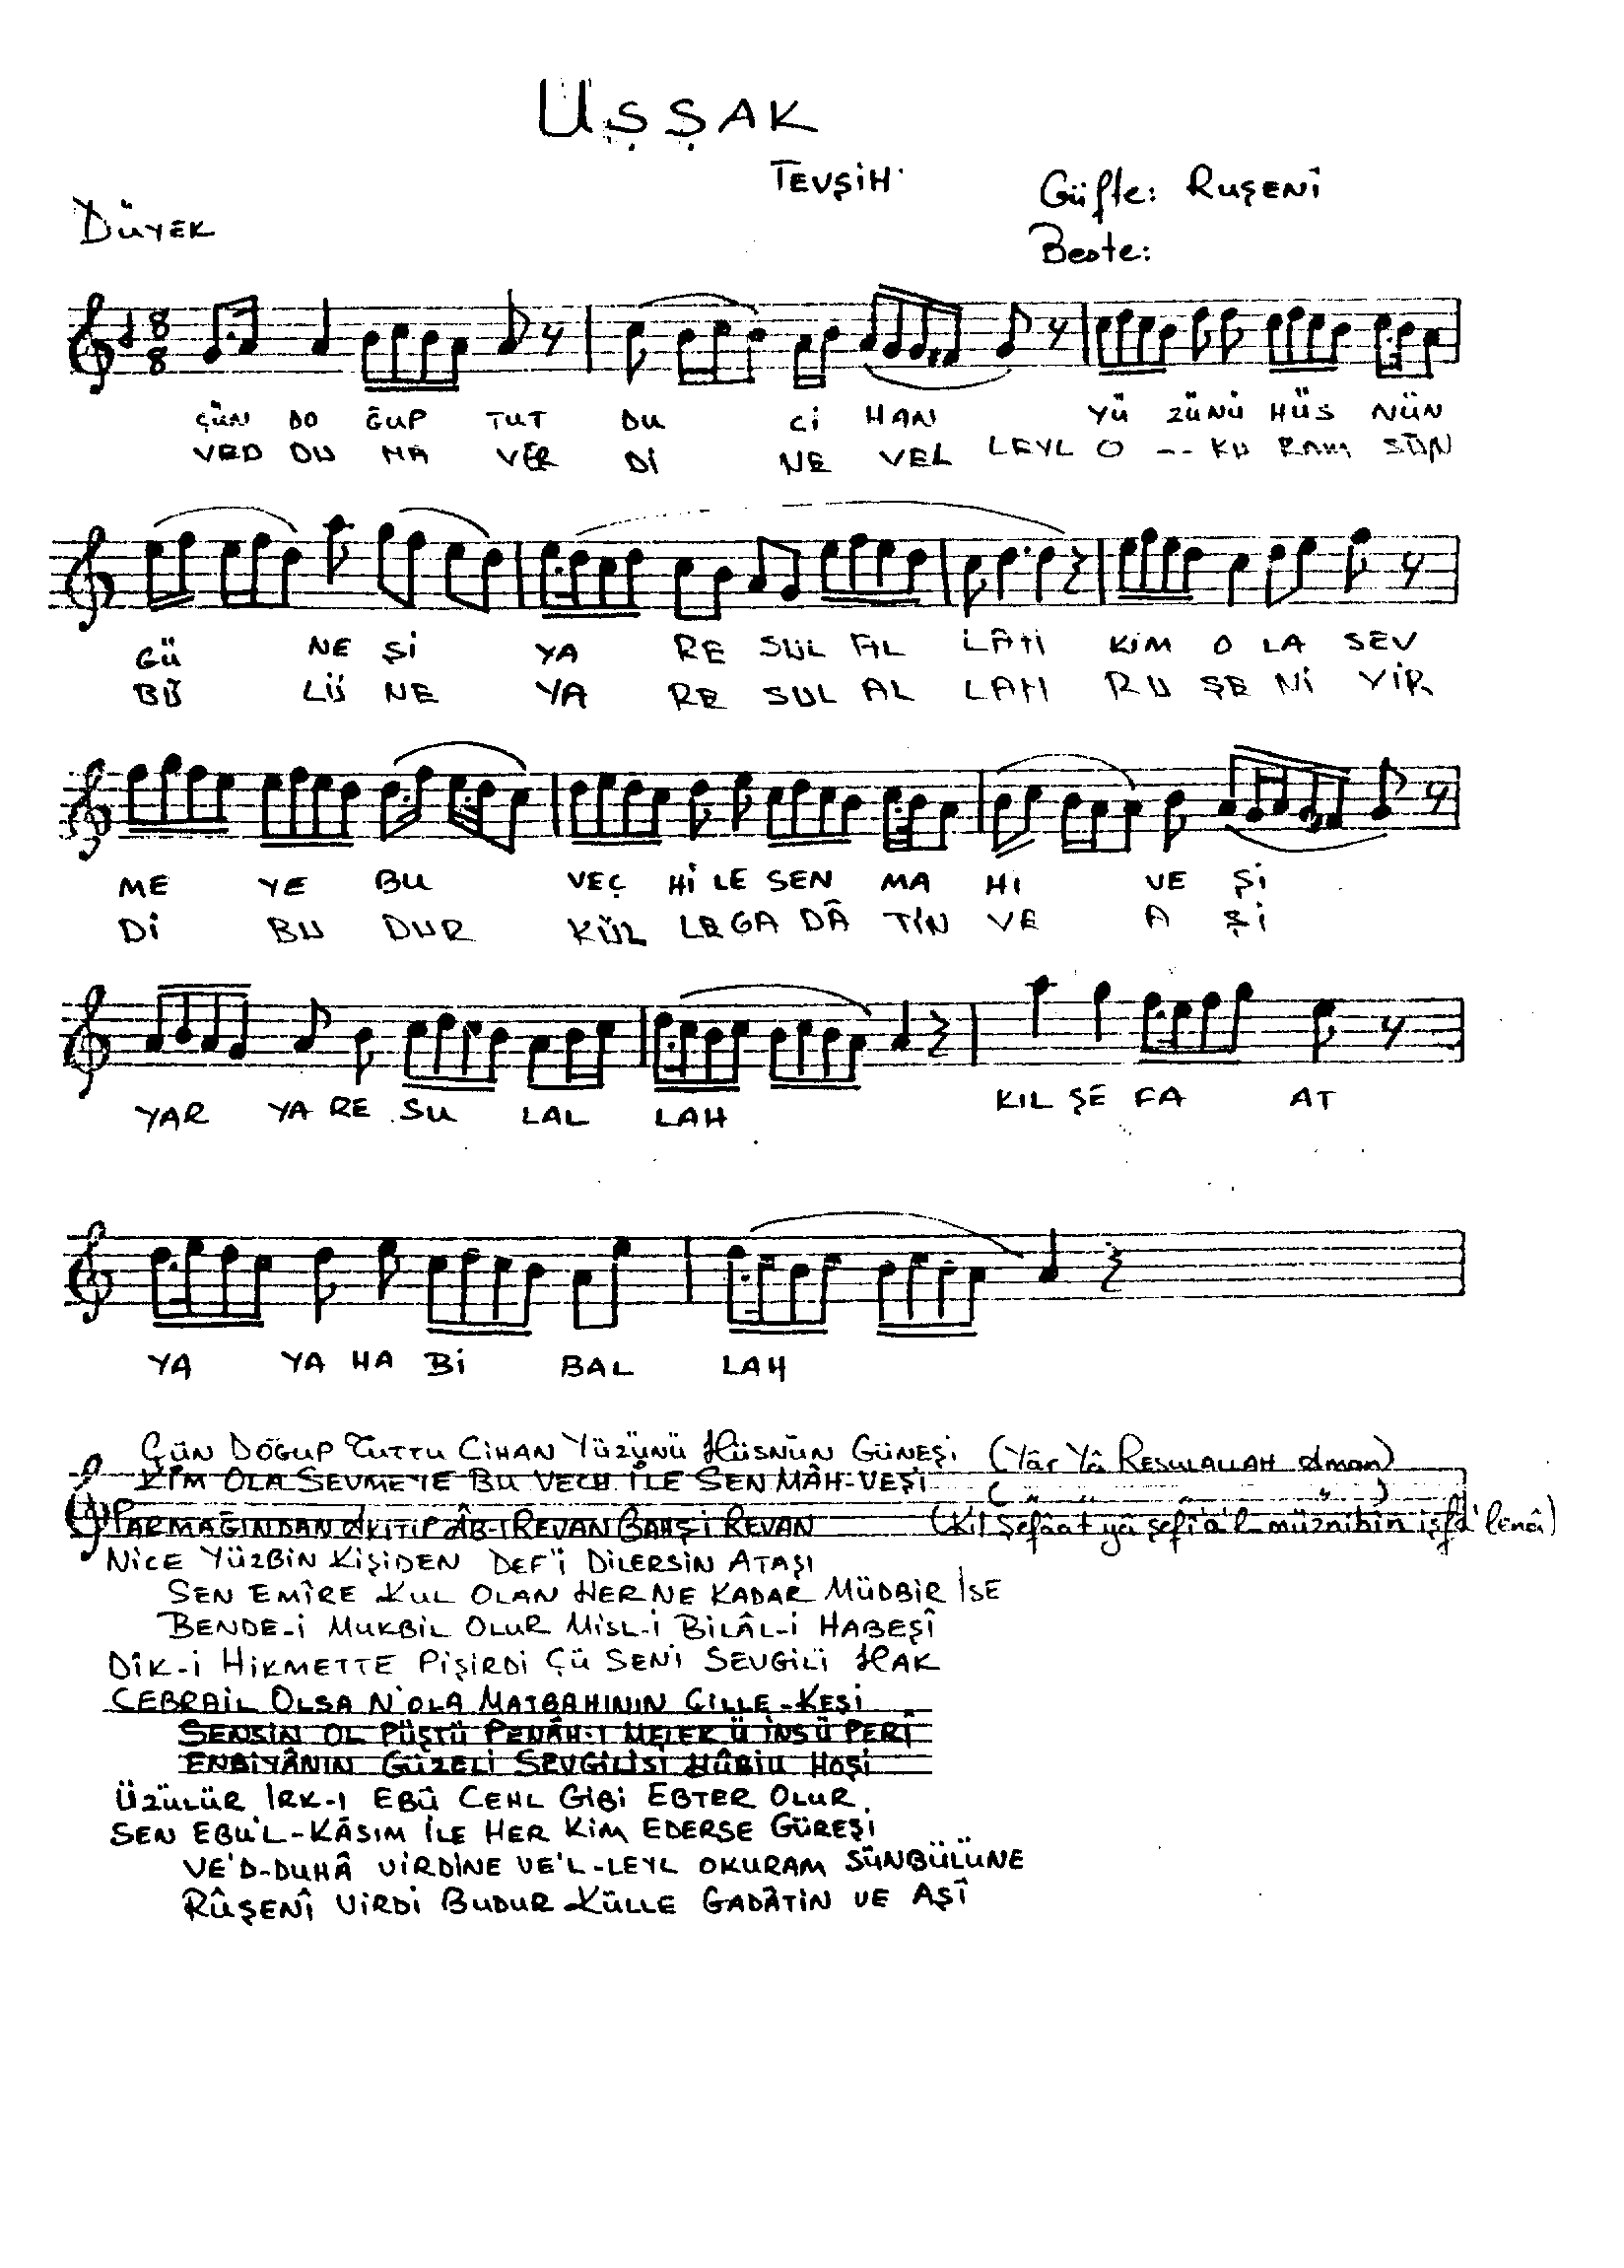 UŞŞAK
TEVŞİH
Güfte: RUŞENÎ
DÜYEK
Beste:
8
8
ÇÜN DO ĞUP TUT DU Cİ HAN YÜ ZÜNÜ HÜS NÜN
VED DU HA VER Dİ NE VEL LEYL O -- KU RAM SÜN
GÜ NE Şİ YA RE SUL AL LÂH KİM O LA SEV
BÜ LÜ NE YA RE SUL AL LAH RU ŞE Nİ VİR
ME YE BU VEÇ Hİ LE SEN MA HI VE Şİ
Dİ BU DUR KÜL LE GA DÂ TİN VE A Şİ
YAR YA RE SU LAL LAH KIL ŞE FA AT
YA YA HA Bİ BAL LAH
ÇÜN DOĞUP TUTTU CİHAN YÜZÜNÜ HÜSNÜN GÜNEŞİ (YÂR YÂ RESULALLAH AMAN)
KİM OLA SEVMEYE BU VECH İLE SEN MÂH-VEŞİ ( " " " " )
PARMAĞINDAN AKITIP ÂB-I REVAN BAHŞİ REVAN (Kıl Şefâat yâ şefî'a'l-müznibîn işfa'lenâ)
NİCE YÜZBİN KİŞİDEN DEF'İ DİLERSİN ATAŞI
SEN EMÎRE KUL OLAN HER NE KADAR MÜDBİR İSE
BENDE-İ MUKBİL OLUR MİSL-İ BİLÂL-İ HABEŞÎ
DÎK-İ HİKMETTE PİŞİRDİ ÇÜ SENİ SEVGİLİ HAK
CEBRAİL OLSA N'OLA MATBAHININ ÇİLLE-KEŞİ
SENSİN OL PÜŞTÜ PENÂH-I MELEK Ü İNSÜ PERÎ
ENBİYÂNIN GÜZELİ SEVGİLİSİ HÛBİU HOŞİ
ÜZÜLÜR IRK-I EBÛ CEHL GİBİ EBTER OLUR
SEN EBU'L-KÂSIM İLE HER KİM EDERSE GÜREŞİ
VE'D-DUHÂ VİRDİNE VE'L-LEYL OKURAM SÜNBÜLÜNE
RÛŞENÎ VİRDİ BUDUR KÜLLE GADÂTİN VE AŞÎ